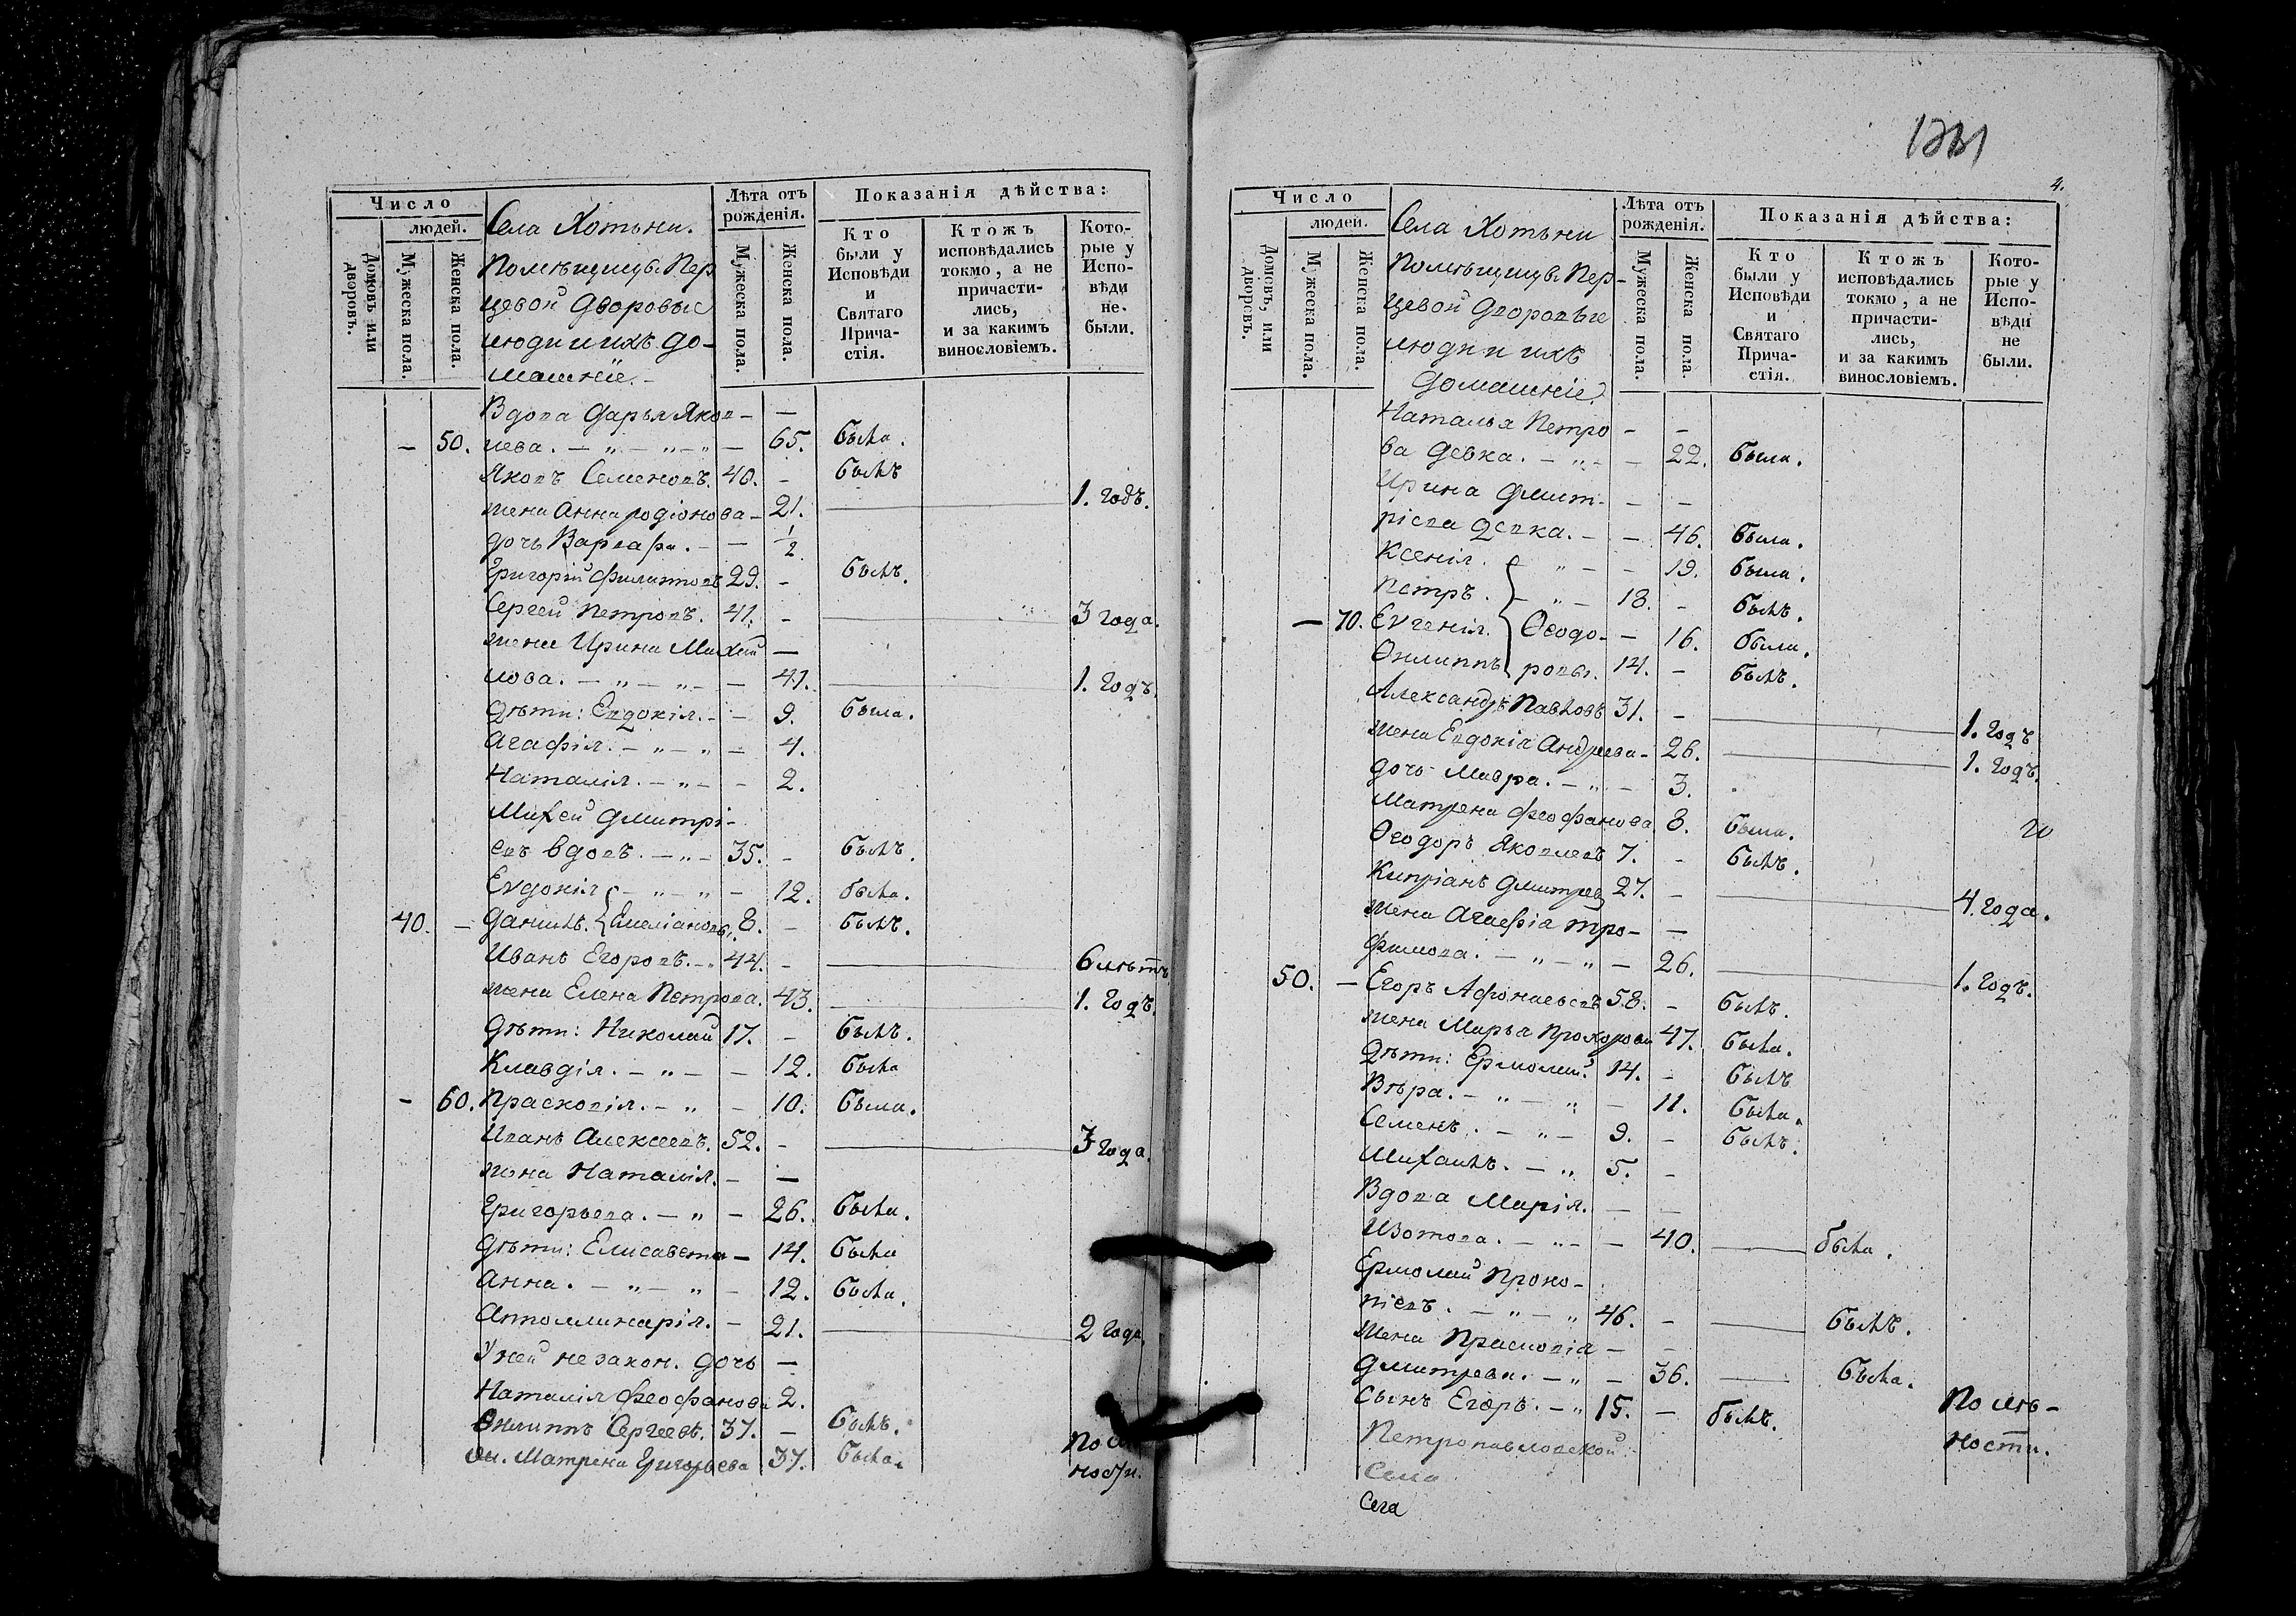 Число
людей.
Домовъ или дворовъ.
Мужеска пола.
Женска пола.
Села Хотьни.
Помѣщицы Пер
цевой Дворовые
люди и ихъ до-
машнiе.-
Лѣта отъ рожденiя.
Мужеска пола.
Женска пола.
Показанiя дѣйства:
Кто были у Исповѣди и Святаго Прича-стiя.
Ктожъ исповѣдались токмо, а не причасти-лись, и за какимъ винословiемъ.
Кото-рые у Испо-вѣди не. были.
Вдова Дарья Яков — —
— 50. лева. — „ — „ — „ — 65. была.
Яковъ Семеновъ. 40. - былъ
жена Анна родiонова — 21. 1. годъ.
дочь Варвара. - — 1/2
Григорiй Филиповъ 29. - былъ.
Сергей Петровъ. 41. - 3 года.
жена Ирина Михай —
лова. — „ — „ — — 41. 1. Годъ.
дѣти: Евдокiя. - — 9. была.
Агафiя. — „ — „ — 4.
Наталiя. — „ — - 2.
Михей Дмитрi-
евъ вдовъ. — „ — 35. - былъ.
Евдокiя - „ — „ — 12. была.
40. — Данилъ. { Емелiановы. 8. - былъ.
Иванъ Егоровъ. — „ 44. - 6 лѣтъ
жена Елена Петрова. 43. 1. Годъ.
Дѣти: Николай 17. - былъ.
Клавдiя. — „ — — 12. была
- 60. Прасковiя. — „ — 10. была.
Иванъ Алексеевъ. 52. - 3 года.
жена Наталiя. — —
Григорьева. — „ — 26. была.
Дѣти: Елисавета — 14. была
Анна. — „ — „ — 12. была.
Апполинарiя. — 21. 2 года.
У ней незакон. дочь —
Наталiя Феофанова 2.
Филиппъ Сергеевъ. 37. — былъ.
жен. Матрена Григорьева 37. была.
ности.
4.
Число
людей.
Домовъ, или дворовъ.
Мужеска пола.
Женска пола.
Села Хотьни
Помѣщицы Пер-
цевой Дворовые
люди и ихъ
Домашнiе.
Лѣта отъ рожденiя.
Мужеска пола.
Женска пола.
Показанiя дѣйства:
Кто были у Исповѣди и Святаго Прича-стiя.
Ктожъ исповѣдались токмо, а не причасти-лись, и за какимъ винословiемъ.
Кото-рые у Испо-вѣди не были.
Наталья Петро - -
ва девка. — „ - — 22. была.
Ирина Дмит- — —
рiева девка. — — 46. была.
Ксенiя. - „ — — 19. была.
Петръ. - „ — 18. - былъ.
— 70. Евгенiя. { Ѳеодо- — 16. была.
Филиппъ ровы. 14. - былъ.
Александръ Павловъ 31. - 1. Годъ
жена Евдокiя Андреева - 26. 1. Годъ.
дочь Мавра. — „ — 3.
Матрена Феофанова 8. была.
Ѳеодоръ Яковлевъ 7. - былъ.
Кипрiанъ Дмитрев 27. - 4. года.
жена Агафiа Тро- —
фимова. — „ — „ — 26. 1. Годъ.
50. — Егоръ Афонасьевъ 58. - былъ.
жена Марья Прохорова 47. была.
Дѣти: Ермолай. 14. - былъ
Вѣра. — „ — „ — 11. была.
Семенъ. — „ — 9. - былъ.
Михаилъ. — „ 5. -
Вдова Марiя. — —
Изотова. — „ — — 40. была.
Ермолай Проко-
пiевъ. — „ — „ 46. - былъ.
жена Прасковiя — -
Дмитрева. — „ — 36. была.
Сынъ Егоръ. — „ 15. — былъ.
По лѣ-
ности.
Петропавловской
Села
Села